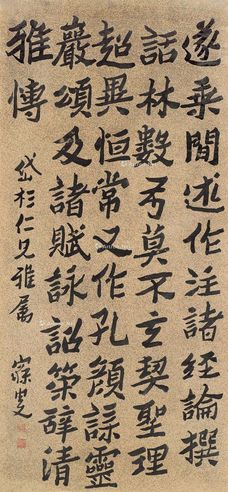 遂乘閒述作注諸經論撰
話林數万莫不玄契聖理
超異恒常又作孔顏誄靈
巖頌及諸賦詠詔策辭清
雅愽
岱杉仁兄雅属
寐叟